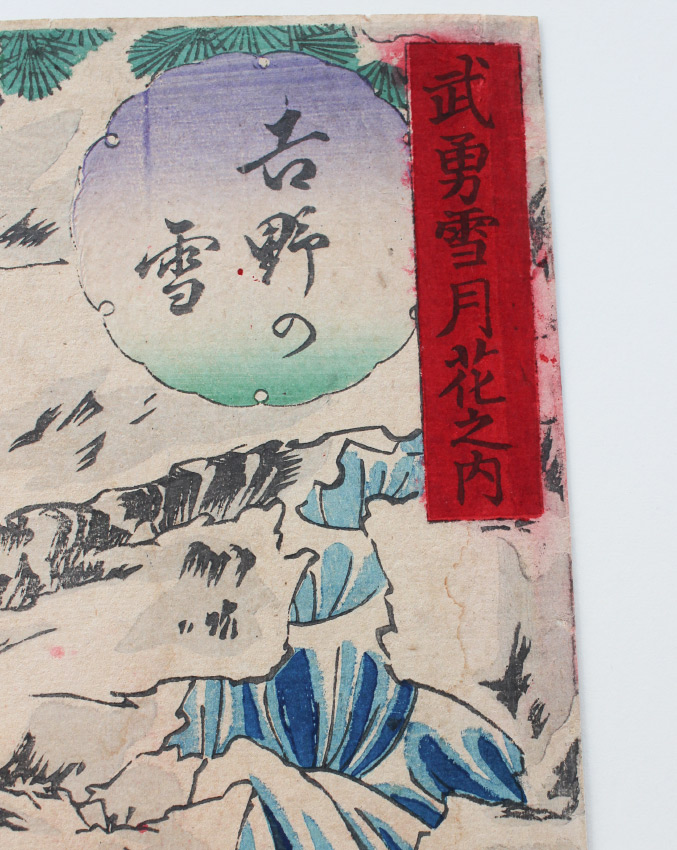 武勇雪月花之内
吉野の
雪